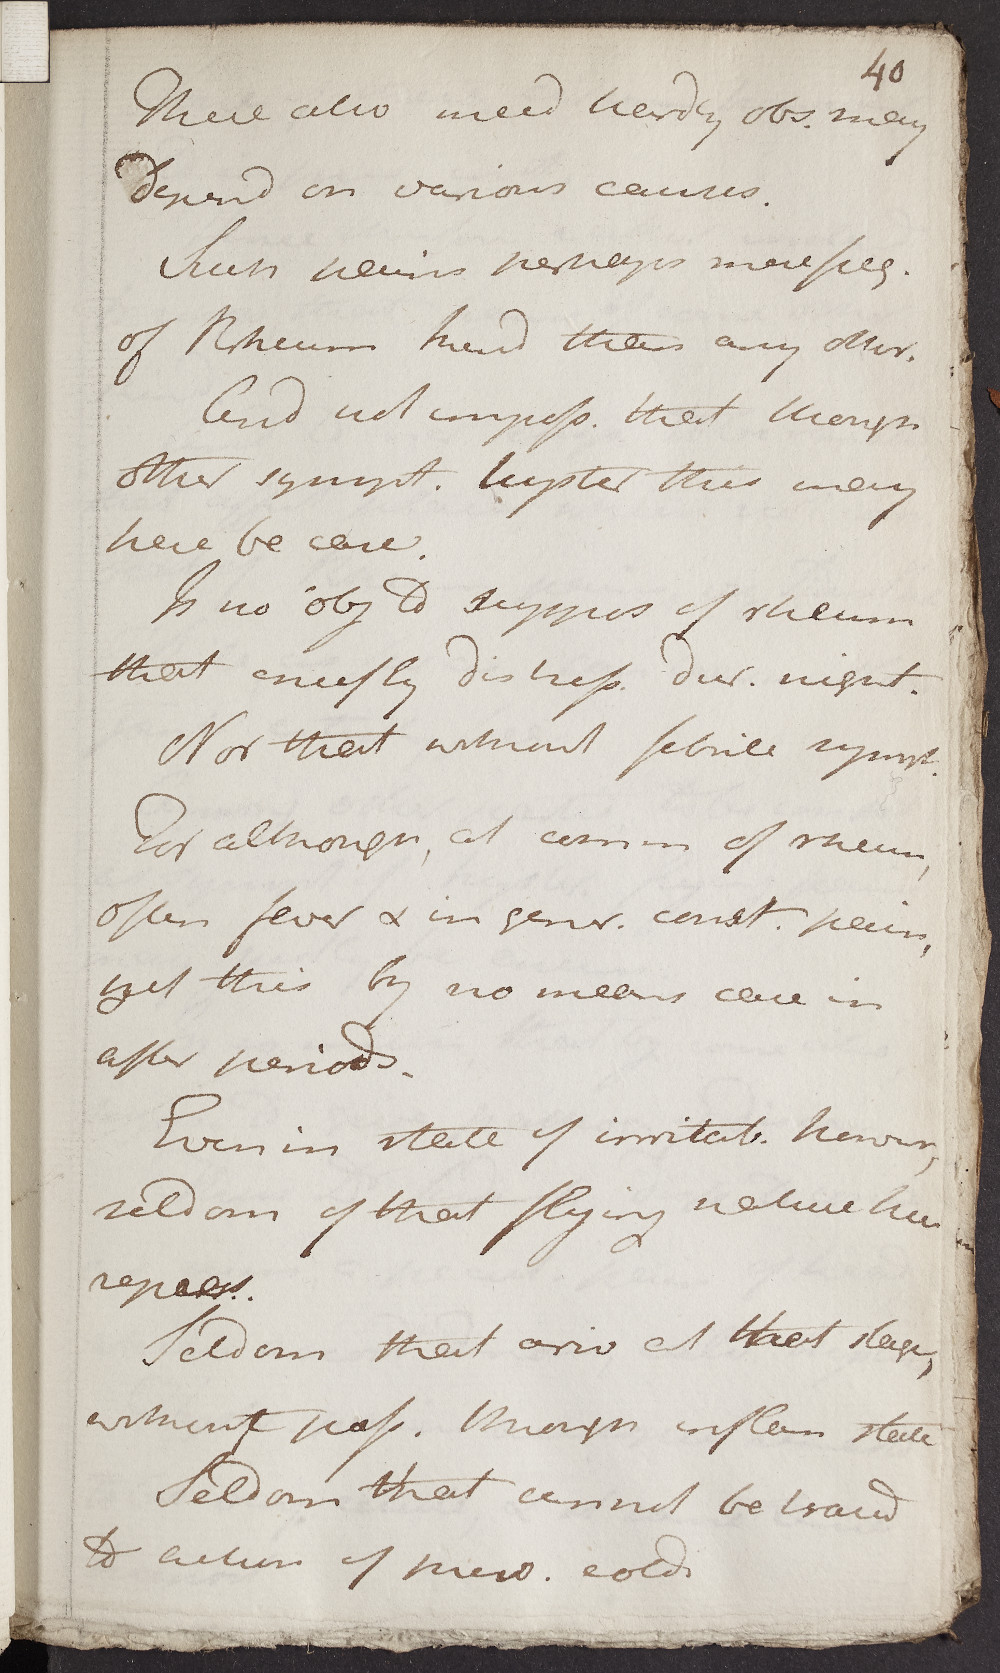 40
These also need hardly obs. may
depend on various causes.
Such pains perhaps more freq.
of Rheum kind than any other.
And not imposs. that though
other sympt. hyster this may
here be case.
Is no obj to suppos of rheum
that chiefly distress. dur. night.
Nor that without febrile sympt.
For although, at comm of rheum,
often fever & in gener. const. pain,
yet this by no means case in
after periods.
Even in state of irritab. however,
seldom of that flying nature here
repres.
Seldom that arriv at that stage,
without pass. through inflam state
Seldom that cannot be traced
to action of prev. cold